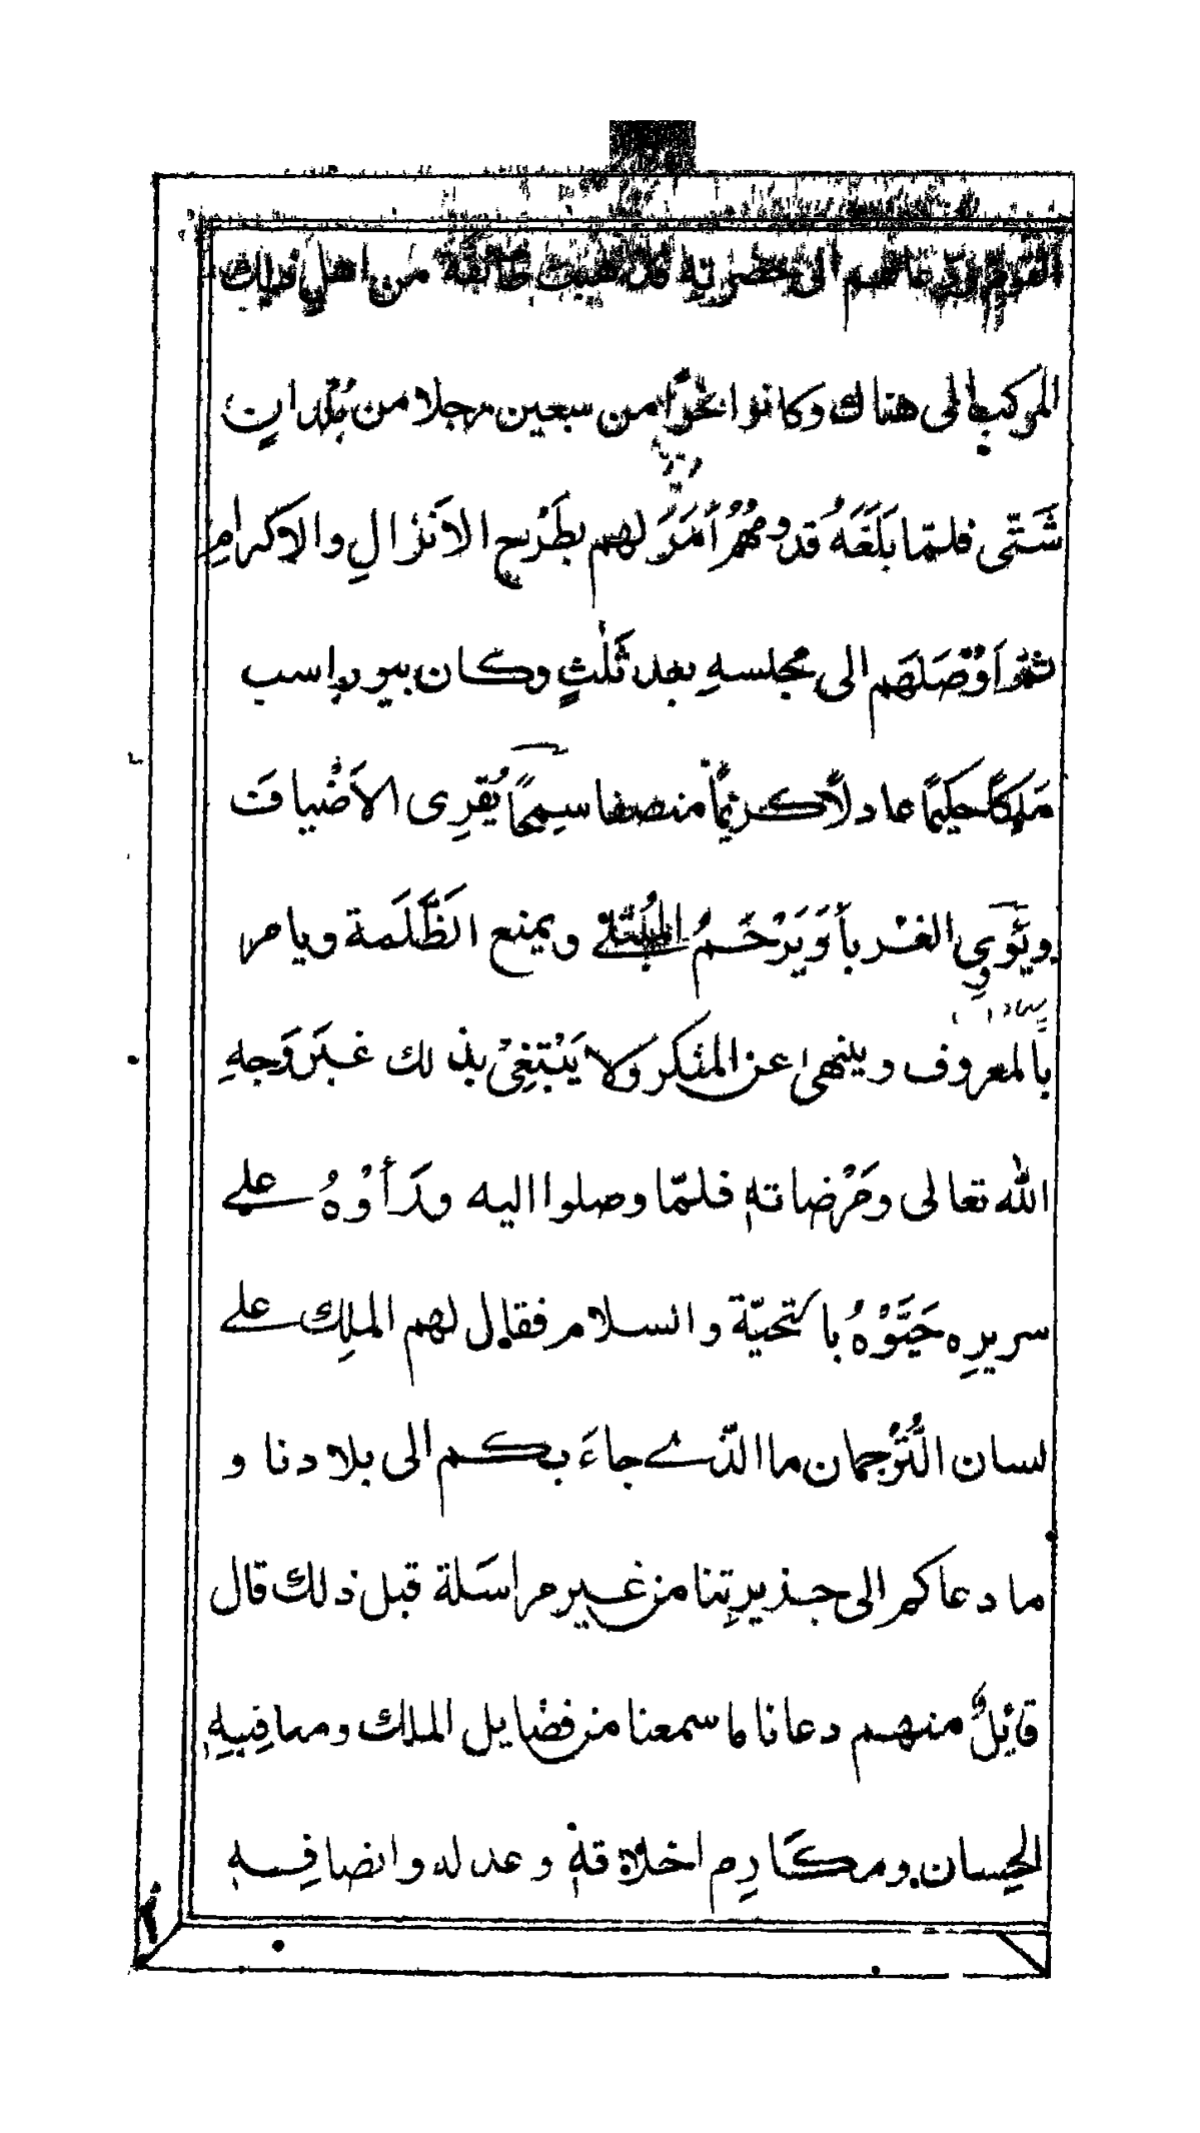 القوم ودعاهم الى حضرته قد هبت طائفة من اهل ذلك
المركب الى هناك وكانوا نحوًا من سبعين رجلا من بُلْدانٍ
شَتّى فلمّا بَلَغَهُ قدومُهُمْ أَمَرَ لهم بطَرْح الاَنْزالِ والاكرامِ
ثمّ اَوْصَلَهَم الى مجلسهِ بعد ثَلٰثٍ وكان بيوراسب
مَلِكًا حكيمًا عادلًا كريمًا منصفا سمِحًا يُقرِى الاَضْياف
ويُؤوِي الغربأ وَيَرْحَمُ المُبْتَلے ويمنع الظَّلَمة ويامر
بالمعروف وينهى عن المُنكر ولا يَبْتغِىْ بذلك غيَر وَجهِ
الله تعالى ومَرْضاتهٖ فلمّا وصلوا اليه ورَأَوْهُ علے
سريرِه حَيَّوْهُ بالتحيّة والسلام فقال لهم الملِك علے
لسان التُّرْجمان ما الذّے جاءَ بكم الى بلادنا و
ما دعاكم الى جذيرتِنا من غير مراسَلة قبل ذلك قال
قائِلٌ منهم دعانا ما سمعنا من فضايل الملك ومناقِبهٖ
الحِسان ومكَارِم اخلاقهٖ وعدله وانصافِهٖ